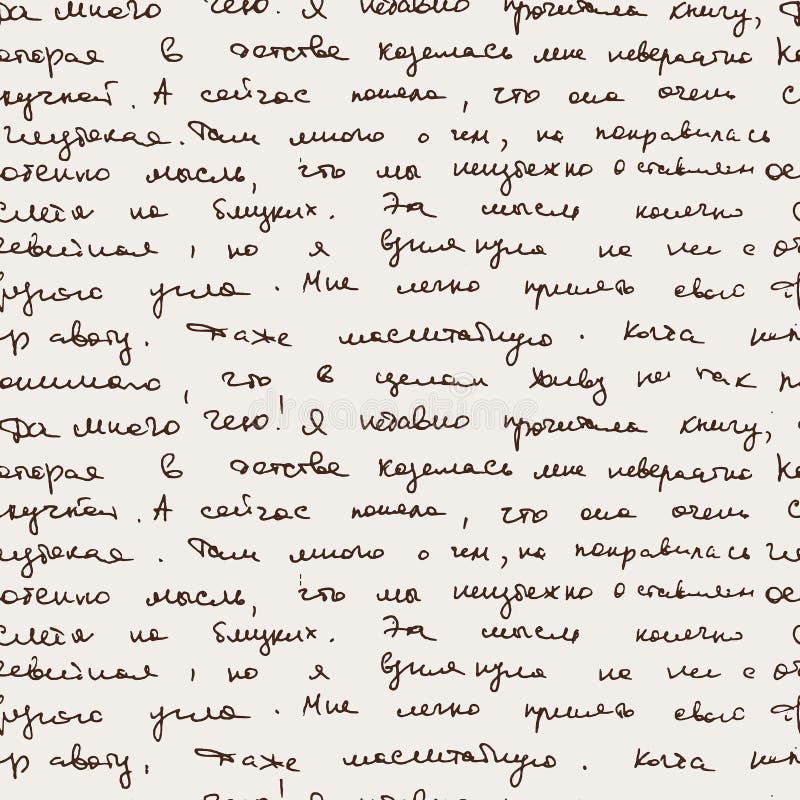 Да много чего! Я недавно прочитала книгу,
оторая в детстве казалась мне невероятно
кучной. А сейчас поняла, что она очень с
глубокая. Там много о чем, но понравилась
мысль, что мы неизбежно оставляем
на близких. Эта мысль конечно
но я взглянула на нее с
другого угла. Мне легко принять свою
правоту. Даже масштабную. Когда
понимаю, что в целом живу не так п
Да много чего! Я недавно прочитала книгу,
оторая в детстве казалась мне невероятно
кучной. А сейчас поняла, что она очень с
глубокая. Там много о чем, но понравилась
мысль, что мы неизбежно оставляем
на близких. Эта мысль конечно
но я взглянула на нее с
другого угла. Мне легко принять свою
правоту. Даже масштабную. Когда